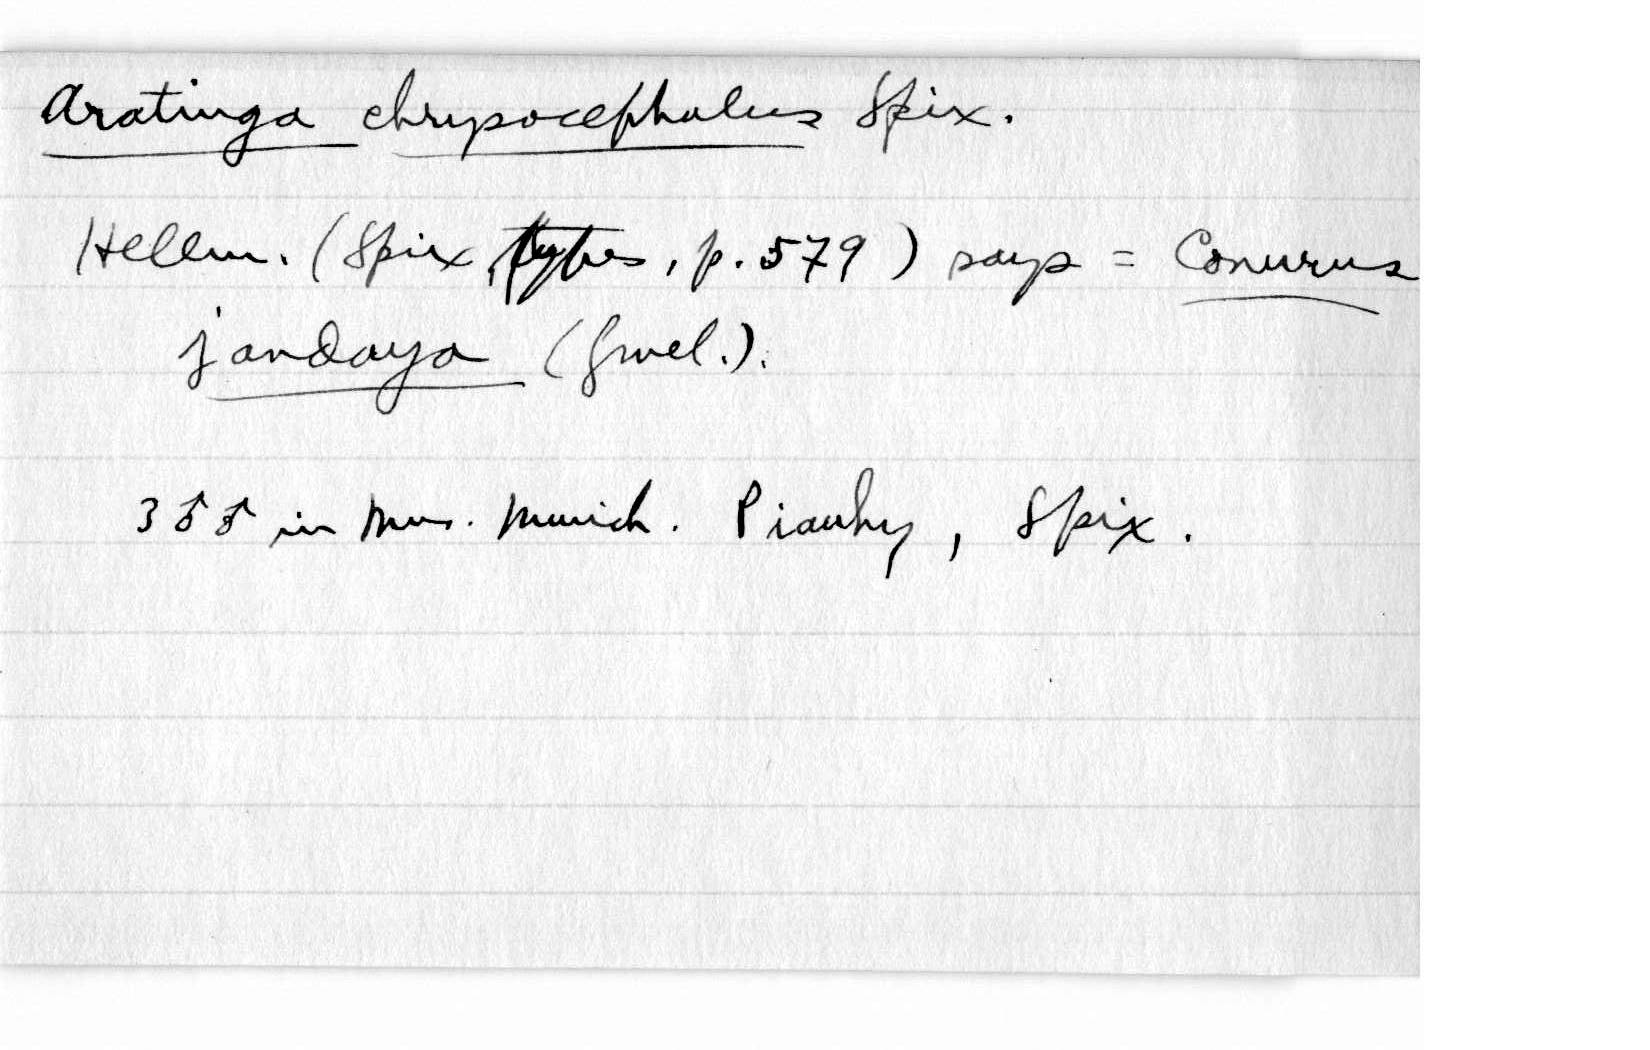 Aratinga chrysocephalus Spix.
Hellm. (Spix, types, p. 579) says = Conurus
jandaya (Gmel.).
3 ♂♂ in Mus. Munich. Piauhy, Spix.